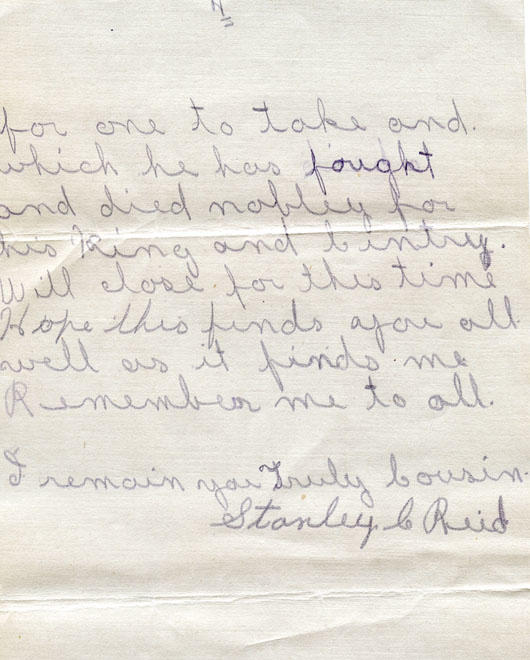 for one to take and.
which he has fought
and died nobley for
his King and Cuntry.
Will close for this time
Hope this finds you all
well as it finds me
Remember me to all.
I remain you Truly Cousin.
Stanley C Reid